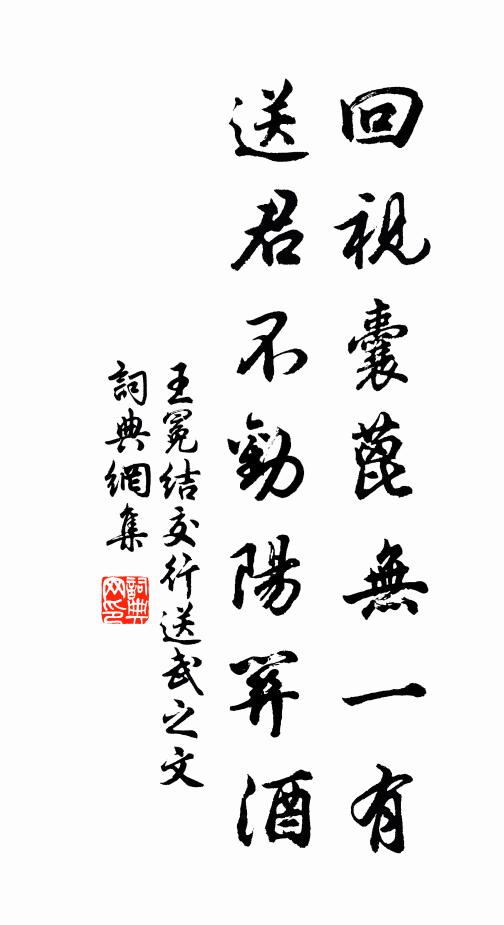 回視囊蓖無一有
送君不勸陽関酒
王冕結交行送武之文
詞典網集
詞典网印